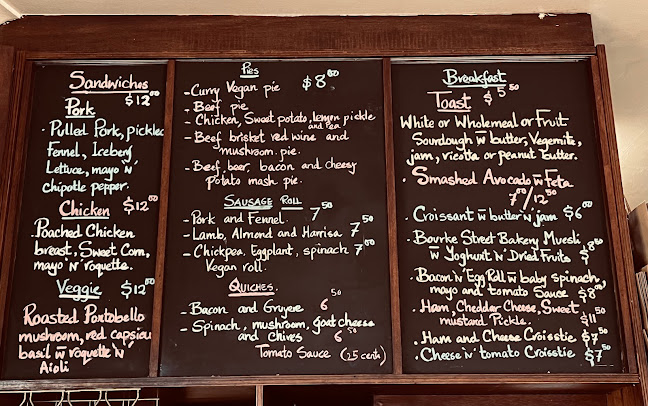 Sandwiches
$12⁰⁰
Pork
. Pulled Pork, pickled
Fennel, Iceberg
Lettuce, mayo 'N'
chipotle pepper.
Chicken $12⁰⁰
. Poached Chicken
breast, Sweet Corn,
mayo 'N' roquette.
Veggie $12⁰⁰
Roasted Portobello
mushroom, red capsicu
basil w̄ roquette 'N'
Aioli
Pies
- Curry Vegan pie $8⁰⁰
- Beef pie
- Chicken, Sweet potato, lemon pickle
and Pea
- Beef brisket red wine and
mushroom pie.
- Beef, beer, bacon and cheesy
Potato mash pie.
Sausage Roll
- Pork and Fennel. 7⁵⁰
- Lamb, Almond and Harrisa 7⁵⁰
- Chickpea, Eggplant, spinach 7⁰⁰
Vegan roll.
Quiches.
- Bacon and Gruyere 6⁵⁰
- Spinach, mushroom, goat cheese
and chives 6⁵⁰
Tomato Sauce (25 cents)
Breakfast
Toast $5⁵⁰
White or Wholemeal or Fruit
Sourdough w̄ butter, Vegemite,
jam, ricotta or peanut butter.
. Smashed Avocado w̄ Feta
7⁰⁰/12⁵⁰
. Croissant w̄ butter 'n' jam $6⁰⁰
. Bourke Street Bakery Muesli
w̄ Joghurt 'n' Dried Fruits $8⁵⁰
. Bacon 'n' Egg Roll w̄ baby spinach,
mayo and tomato Sauce $8⁰⁰
. Ham, Cheddar Cheese, Sweet
mustard Pickle. $11⁵⁰
. Ham and Cheese Croisstie $7⁵⁰
. Cheese 'n' tomato Croisstie $7⁵⁰